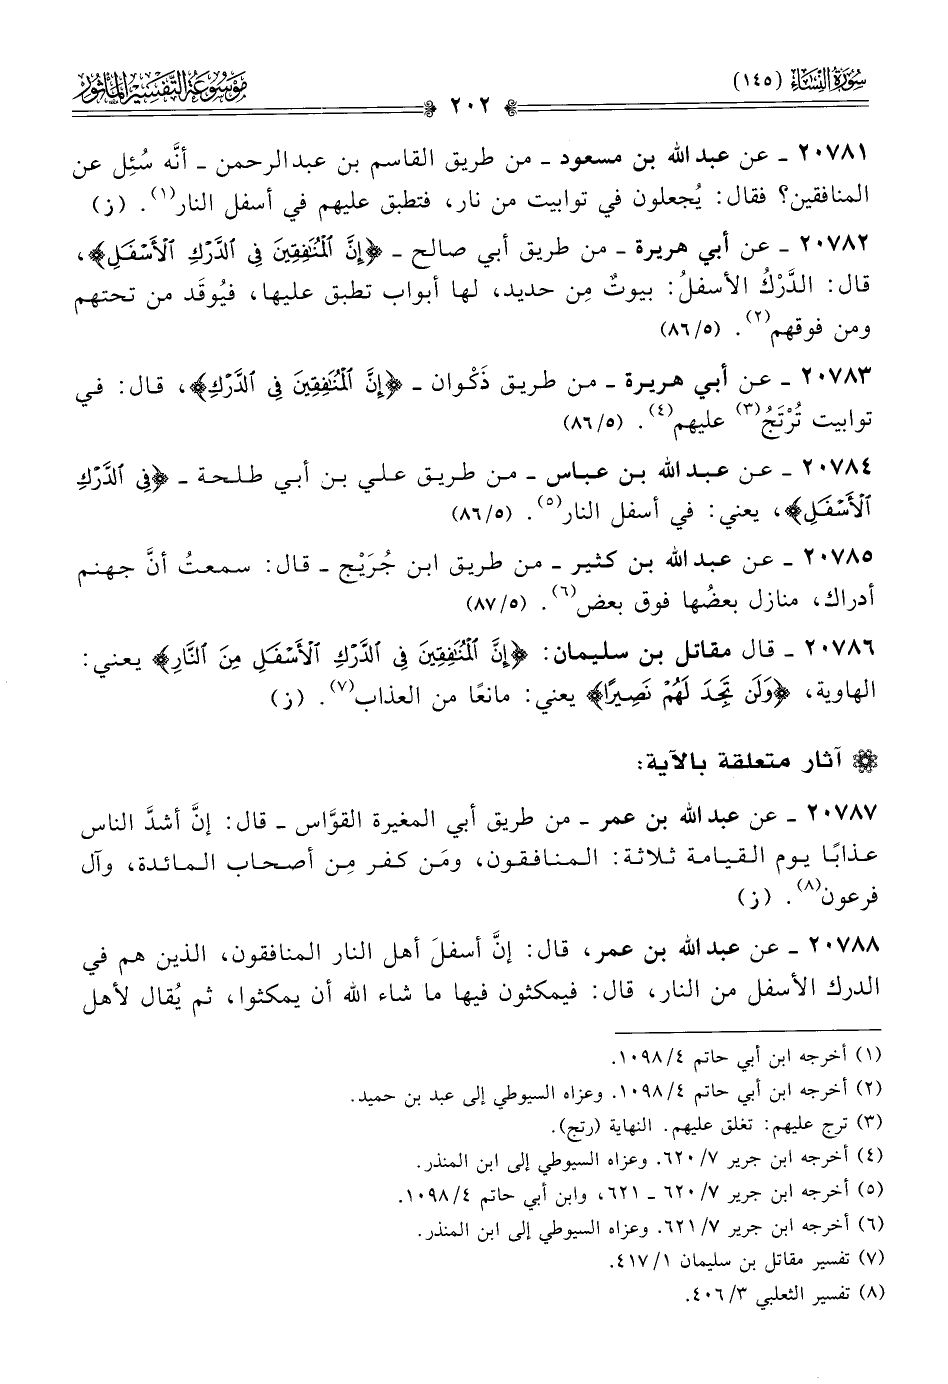 سُورَةُ النِّسَاءِ (١٤٥)
٢٠٢
مَوْسُوعَةُ التَّفْسِيرِ المَأْثُور
٢٠٧٨١ ـ عن عبد الله بن مسعود ـ من طريق القاسم بن عبدالرحمن ـ أنَّه سُئِل عن
المنافقين؟ فقال: يُجعلون في توابيت من نار، فتطبق عليهم في أسفل النار(١). (ز)
٢٠٧٨٢ ـ عن أبي هريرة ـ من طريق أبي صالح ـ ﴿إِنَّ ٱلْمُنَٰفِقِينَ فِى ٱلدَّرْكِ ٱلْأَسْفَلِ﴾،
قال: الدَّرْكُ الأسفلُ: بيوتٌ مِن حديد، لها أبواب تطبق عليها، فيُوقَد من تحتهم
ومن فوقهم(٢). (٨٦/٥)
٢٠٧٨٣ ـ عن أبي هريرة ـ من طريق ذَكْوان ـ ﴿إِنَّ ٱلْمُنَٰفِقِينَ فِى ٱلدَّرْكِ﴾، قال: في
توابيت تُرْتَجُ(٣) عليهم(٤). (٨٦/٥)
٢٠٧٨٤ ـ عن عبد الله بن عباس ـ من طريق علي بن أبي طلحة ـ ﴿فِى ٱلدَّرْكِ
ٱلْأَسْفَلِ﴾، يعني: في أسفل النار(٥). (٨٦/٥)
٢٠٧٨٥ ـ عن عبد الله بن كثير ـ من طريق ابن جُرَيْج ـ قال: سمعتُ أنَّ جهنم
أدراك، منازل بعضُها فوق بعض(٦). (٨٧/٥)
٢٠٧٨٦ ـ قال مقاتل بن سليمان: ﴿إِنَّ ٱلْمُنَٰفِقِينَ فِى ٱلدَّرْكِ ٱلْأَسْفَلِ مِنَ ٱلنَّارِ﴾ يعني:
الهاوية، ﴿وَلَن تَجِدَ لَهُمْ نَصِيرًا﴾ يعني: مانعًا من العذاب(٧). (ز)
آثار متعلقة بالآية:
٢٠٧٨٧ ـ عن عبد الله بن عمر ـ من طريق أبي المغيرة القوَّاس ـ قال: إنَّ أشدَّ الناس
عذابًا يوم القيامة ثلاثة: المنافقون، ومَن كفر مِن أصحاب المائدة، وآل
فرعون(٨). (ز)
٢٠٧٨٨ ـ عن عبد الله بن عمر، قال: إنَّ أسفلَ أهل النار المنافقون، الذين هم في
الدرك الأسفل من النار، قال: فيمكثون فيها ما شاء الله أن يمكثوا، ثم يُقال لأهل
(١) أخرجه ابن أبي حاتم ١٠٩٨/٤.
(٢) أخرجه ابن أبي حاتم ١٠٩٨/٤. وعزاه السيوطي إلى عبد بن حميد.
(٣) ترج عليهم: تغلق عليهم. النهاية (رتج).
(٤) أخرجه ابن جرير ٦٢٠/٧. وعزاه السيوطي إلى ابن المنذر.
(٥) أخرجه ابن جرير ٦٢٠/٧ ـ ٦٢١، وابن أبي حاتم ١٠٩٨/٤.
(٦) أخرجه ابن جرير ٦٢١/٧. وعزاه السيوطي إلى ابن المنذر.
(٧) تفسير مقاتل بن سليمان ٤١٧/١.
(٨) تفسير الثعلبي ٤٠٦/٣.